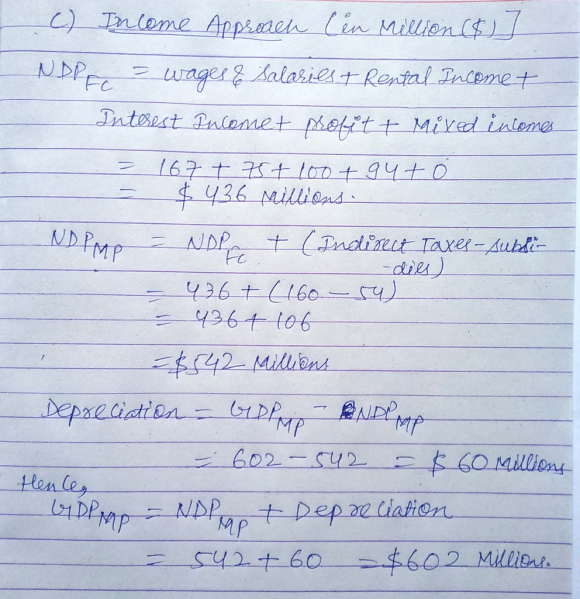 C) Income Approach (in Million($)]
NDP FC = wages & Salaries + Rental Income +
Interest Income + profit + Mixed incomes
= 167 + 75 + 100 + 94 + 0
= $ 436 Millions.
NDP MP = NDP FC + (Indirect Taxes - subsi-
-dies)
= 436 + (160 - 54)
= 436 + 106
= $542 Millions
Depreciation = GDP MP - NDP MP
= 602 - 542 = $ 60 Millions
Hence,
GDP MP = NDP MP + Depreciation
= 542 + 60 = $602 Millions.